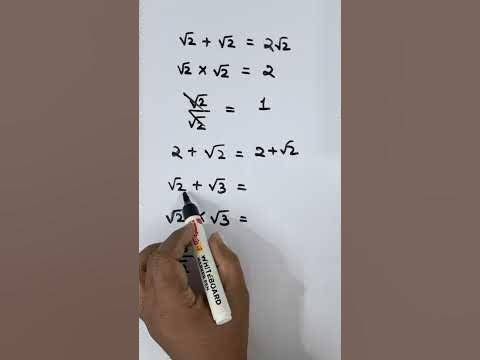 √2 + √2 = 2√2
√2 × √2 = 2
√2/√2 = 1
2 + √2 = 2+√2
√2 + √3 =
√2 × √3 =
WHITEBOARD